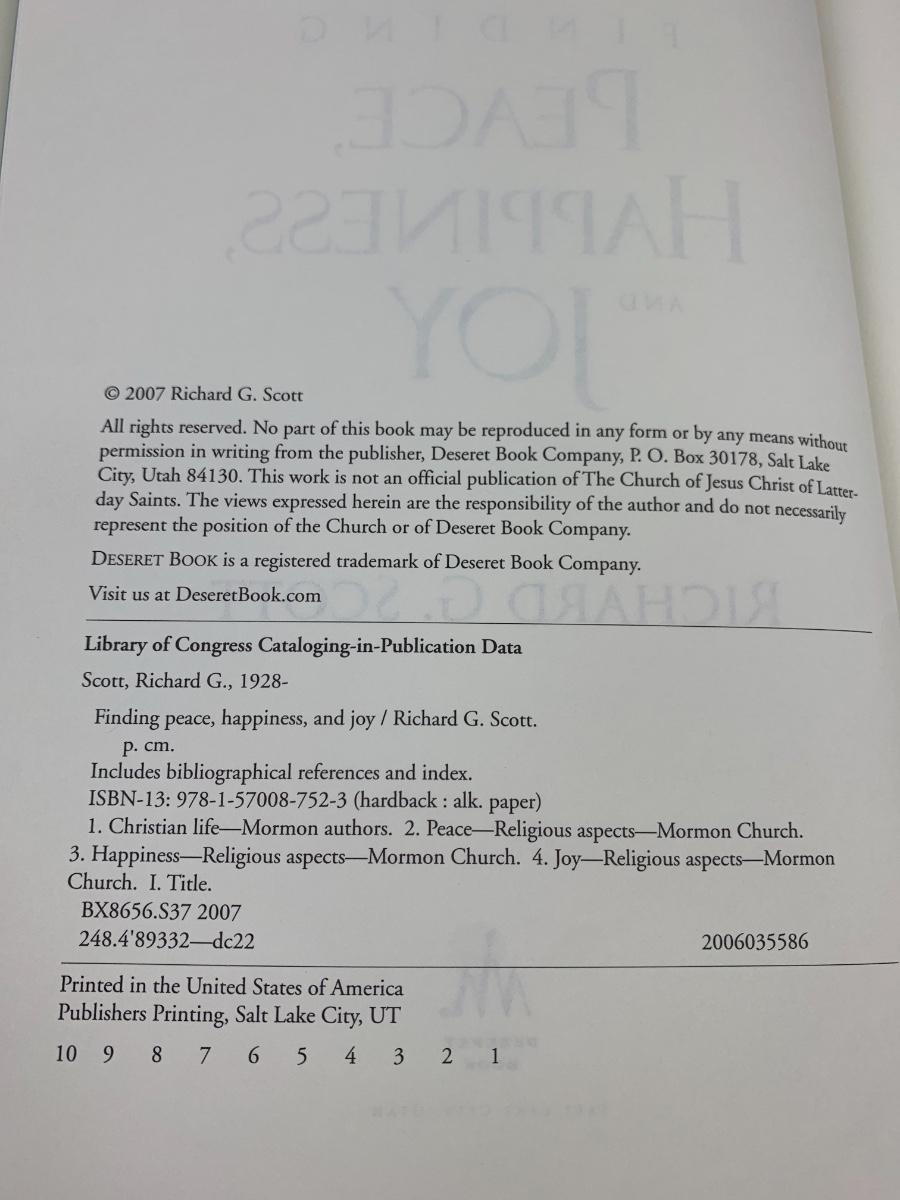 FINDING
PEACE,
HAPPINESS,
AND JOY
© 2007 Richard G. Scott
All rights reserved. No part of this book may be reproduced in any form or by any means without
permission in writing from the publisher, Deseret Book Company, P. O. Box 30178, Salt Lake
City, Utah 84130. This work is not an official publication of The Church of Jesus Christ of Latter-
day Saints. The views expressed herein are the responsibility of the author and do not necessarily
represent the position of the Church or of Deseret Book Company.
DESERET BOOK is a registered trademark of Deseret Book Company.
Visit us at DeseretBook.com
RICHARD G. SCOTT
Library of Congress Cataloging-in-Publication Data
Scott, Richard G., 1928-
Finding peace, happiness, and joy / Richard G. Scott.
p. cm.
Includes bibliographical references and index.
ISBN-13: 978-1-57008-752-3 (hardback : alk. paper)
1. Christian life—Mormon authors. 2. Peace—Religious aspects—Mormon Church.
3. Happiness—Religious aspects—Mormon Church. 4. Joy—Religious aspects—Mormon
Church. I. Title.
BX8656.S37 2007
248.4'89332—dc22 2006035586
Printed in the United States of America
Publishers Printing, Salt Lake City, UT
10 9 8 7 6 5 4 3 2 1
DESERET
BOOK
SALT LAKE CITY, UTAH